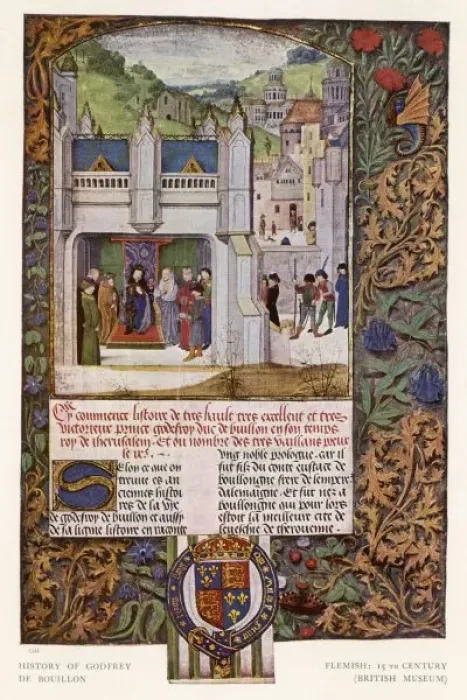 Cy commence listoire de tres hault tres excellent et tres
victorieux prince godefroy duc de buillon en son temps
roy de iherusalem. Et ou nombre des tres vaillans preux
le
Selon ce que on
treuue es an
ciennes histoi
res de la vye
de godefroy de buillon et aussy
de sa ligne listoire en raconte
vng noble prologue. car il
fut filz du conte eustace de
boullongne frere de lempere
dalemaigne. Et fut nez a
boullongne qui pour lors
estoit la meilleure cite de
leuesche de therouenne.
HISTORY OF GODFREY
DE BOUILLON
FLEMISH: 15TH CENTURY
(BRITISH MUSEUM)